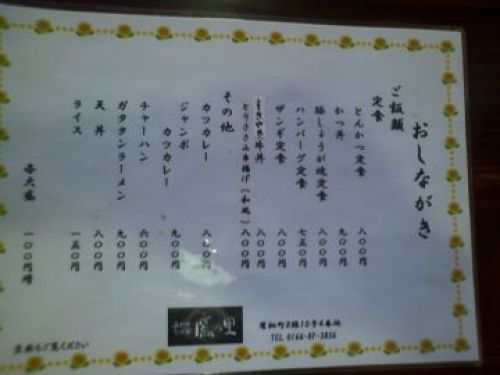 おしながき
ご飯類
定食
とんかつ定食 八〇〇円
かつ丼 九〇〇円
豚しょうが焼定食 八〇〇円
ハンバーグ定食 七五〇円
ザンギ定食 八〇〇円
牛丼 八〇〇円
とりささみ串揚げ(和風) 八〇〇円
その他
カツカレー 八〇〇円
ジャンボ
カツカレー 九〇〇円
チャーハン 六〇〇円
ガタタンラーメン 九〇〇円
天丼 八〇〇円
ライス 一五〇円
各大盛 一〇〇円増
鷹の里
鷹栖町8線10号4番地
TEL 0166-87-3856
裏面もご覧ください